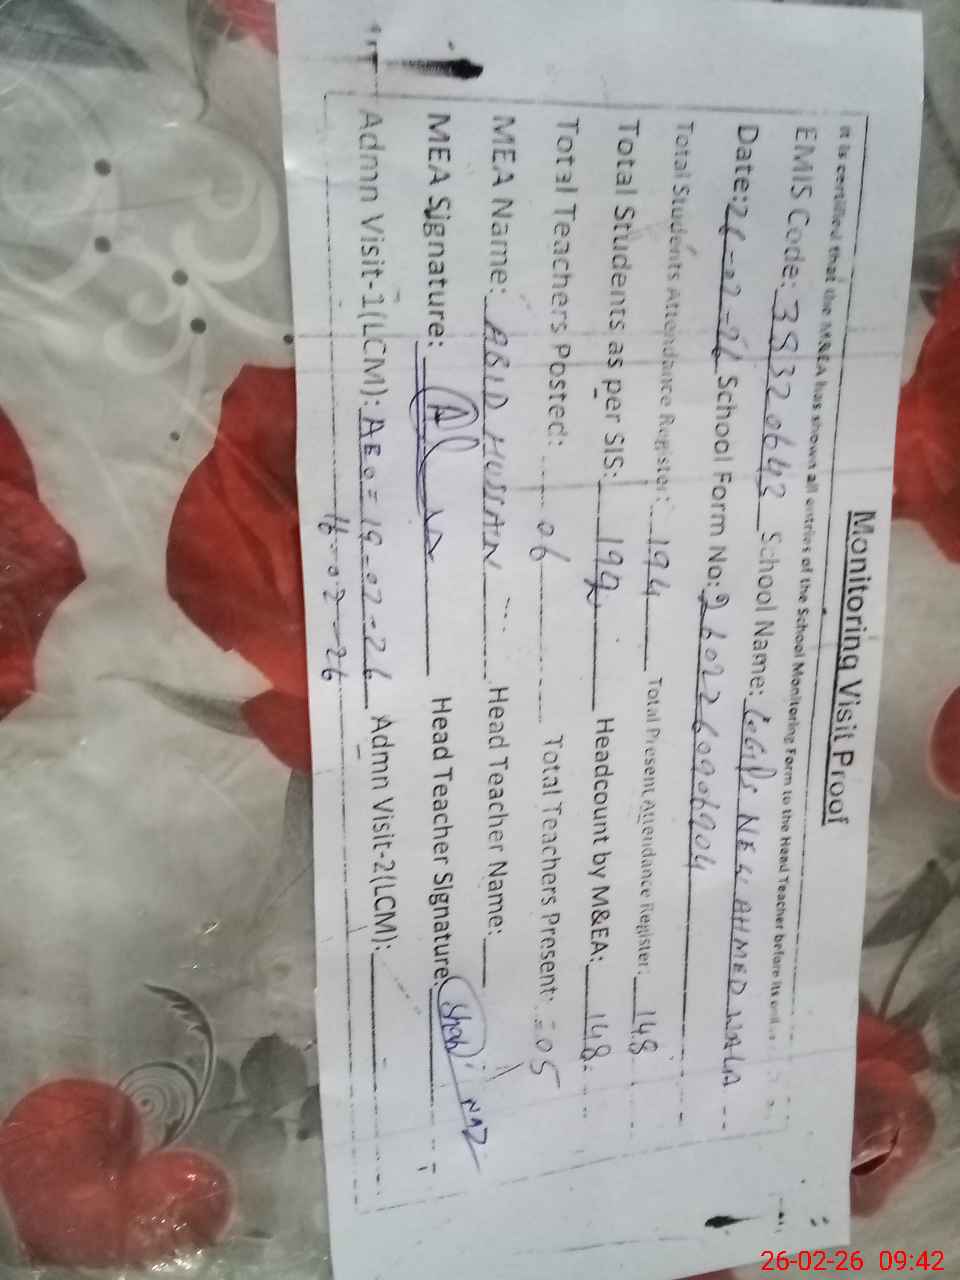 Monitoring Visit Proof
It is certified that the M&EA has shown all entries of the School Monitoring Form to the Head Teacher before its
EMIS Code: 38320642 School Name: NEW AHMED WALA
Date: 26-02-26 School Form No: 2602260906904
Total Students Attendance Register: 194 Total Present Attendance Register: 148
Total Students as per SIS: 199 Headcount by M&EA: 148
Total Teachers Posted: 06 Total Teachers Present: 05
MEA Name: ABID HUSSAIN Head Teacher Name:
MEA Signature: Head Teacher Signature: NAZ
Admn Visit-1(LCM): AEO = 19-02-26 Admn Visit-2(LCM):
16-02-26
26-02-26 09:42